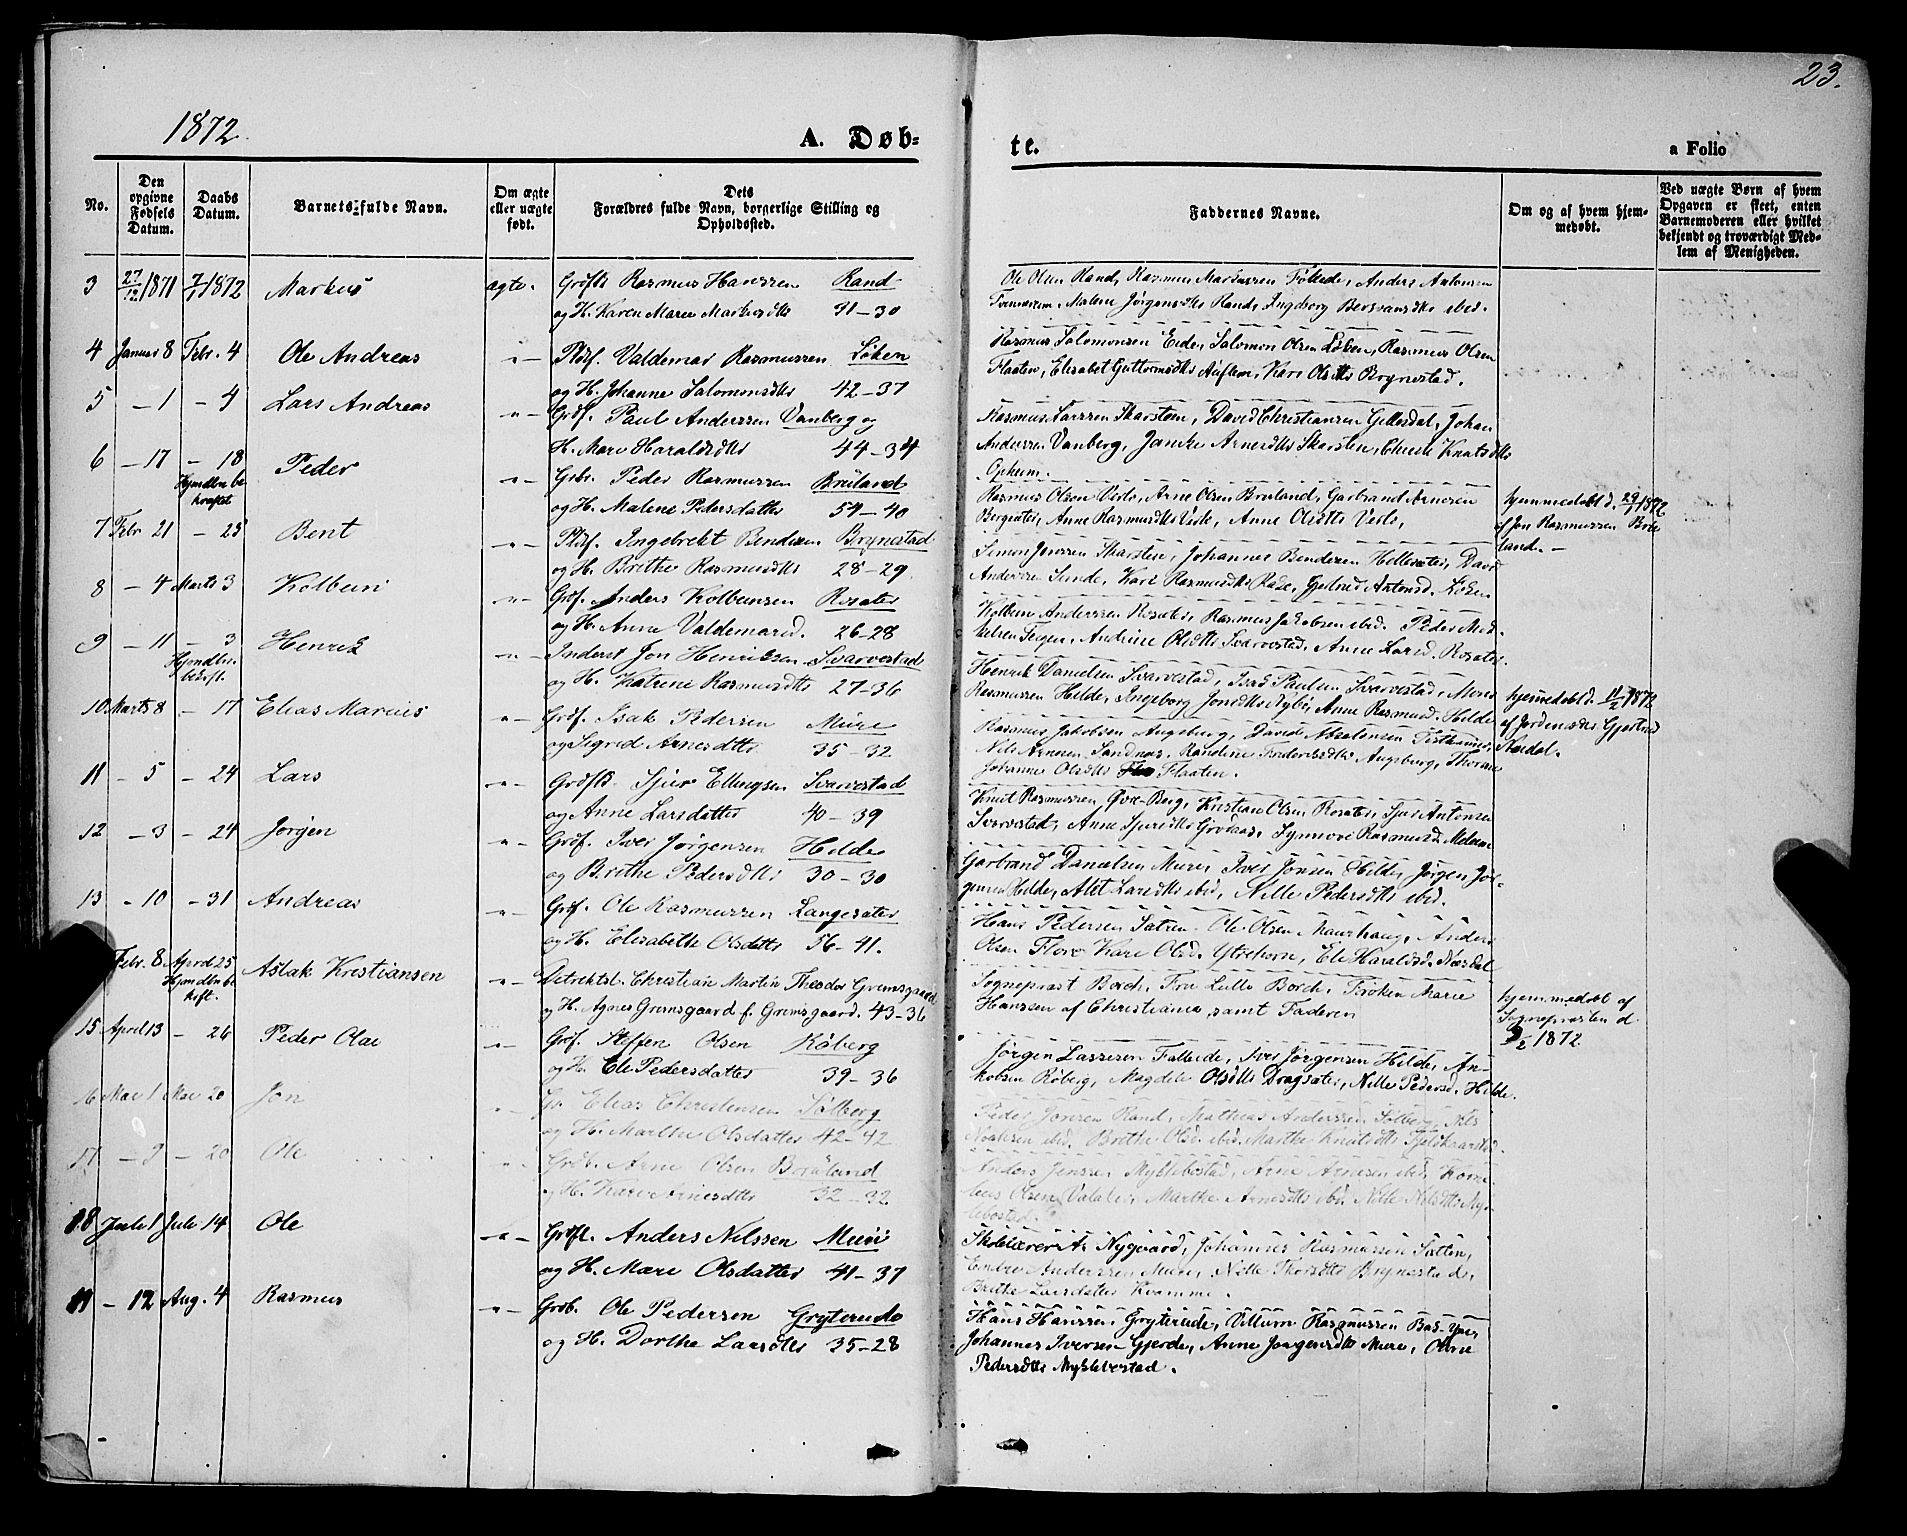 23.
1872.
A. Døb-
te.
a Folio
No.
Den opgivne Fødsels Datum.
Daabs Datum.
Barnets fulde Navn.
Om ægte eller uægte født.
Dets Forældres fulde Navn, borgerlige Stilling og Opholdssted.
Faddernes Navne.
Om og af hvem hjemmedøbt.
Ved uægte Børn af hvem Opgaven er skeet, enten Barnemoderen eller hvilket bekjendt og troværdigt Medlem af Menigheden.
3 27/12 1871 7/1 1872 Markus ægte. Grdfstb Rasmus Hanssen Rand
og H. Karen Marie Markusdtr 31-30
Ole Olsen Rand, Rasmus Markussen Følleide, Anders Antonsen
Malene Jørgensdtr Rand, Ingeborg ibid.
4 Januar 8 Febr. 4 Ole Andreas -"- Pldsf. Valdemar Rasmussen Løken
og H. Johanne Salomonsdtr 42-37
Rasmus Salomonsen Eide, Salomon Olsen Løken, Rasmus Olsen
Flaaten, Elisabet Guttormsdtr Auflem, Kari Olsdtr Brynestad.
5 - 1 - 4 Lars Andreas -"- Grdf. Paul Anderssen Vanberg og
H. Mari Haraldsdtr 44-34
Rasmus Larssen Skarsten, David Christiansen Gillesdal, Johan
Anderssen Vanberg, Janike Arnesdtr Skarsten, Knutsdtr
Opheim.
6 - 17 - 18 Peder -"- Grbr. Peder Rasmussen Bruland
Hjmdbn bekræftet
og H. Malene Pedersdatter 54-40
Rasmus Olsen Vereide, Arne Olsen Bruland, Garbrand Arnesen
Bergsater, Anne Rasmusdtr Anne Olsdtr
hjemmedøbt d. 29/1 1872
af Jon Rasmussen Bruland. -
7 Febr 21 - 25 Bent -"- Pldsf. Ingebrekt Bendixen Brynestad
og H. Brithe Rasmusdtr 28-29.
Simon Jenssen Skarsten, Johannes Bendixen Hellesater, David
Anderssen Sinde, Kari Rasmusdtr Gjertrud Antonsd. Løken
8 - 4 Marts 3 Kolbein -"- Grdf. Anders Kolbeinsen Rosater
og H. Anne Valdemarsd. 26-28
Kolbein Anderssen Rosater, Rasmus Jakobsen ibid. Peder Mikkelsen Teigen, Andrine Olsdtr Svarvestad, Anne Larsd. Rosater.
9 - 11 - 3 Henrik -"- Inderst Jon Henriksen Svarvestad
Hjmdbn. bekræft.
og H. Katrine Rasmusdtr 27-36
Henrik Danielsen Svarvestad, Isak Paulsen Svarvestad, Mons
Rasmussen Hilde, Ingeborg Jonsdtr Nybø, Anne Rasmusd. Hilde
hjemmedøbt d. 11/2 1872
af Jordemoder Gjertrud
10 Marts 8 - 17 Elias Marius -"- Grdf. Isak Pedersen Muri
og Sigrid Arnesdtr 35-32
Rasmus Jakobsen Augsburg, David Absalonsen Tisthamer,
Nils Arnesen Sandnes, Randine Frederiksdtr Augsburg, Thorine
Johanne Olsdtr Flaaten.
11 - 5 - 24 Lars -"- Grdfstb. Sjur Ellingsen Svarvestad
og Anne Larsdatter 40-39
Knut Rasmussen Øvre-Berg, Kristian Olsen Rosater, Sjur Antonsen
Svarvestad, Anne Sjursdtr Synnove Rasmusd. Melem
12 - 3 - 24 Jørgen -"- Grdf. Iver Jørgensen Hilde
og Brithe Pedersdtr 30-30
Garbrand Danielsen Muri, Iver Jonsen Hilde, Jørgen Jørgensen Hilde, Alet Larsdtr ibid, Nille Pedersdtr ibid.
13 - 10 - 31 Andreas -"- Grdf. Ole Rasmussen Langesater
og H. Elisabethe Olsdatter 56-41.
Hans Pedersen Satren. Ole Olsen Maurhaug, Anders
Olsen Floro, Kari Olsd. Ytrehorn, Eli Haraldsd. Næsdal
Febr. 8 April 25 Aslak Kristiansen -"- Distrktsl. Christian Martin Theodor Gremsgaard
Hjmdbn bekræft.
og H. Agnes Gremsgaard f. Gremsgaard. 43-36
Sogneprest Borch, Fru Lulle Borch, Frøken Marie
Hanssen af Christiania, samt Faderen
hjemmedøbt af
Sognepresten d.
/2 1872
15 April 13 - 26 Peder Olai -"- Grdf. Steffen Olsen Røberg
og H. Eli Pedersdatter 39-36
Jørgen Lassesen Falleide, Iver Jørgensen Hilde,
Røberg, Magdeli Olsdtr Dragsater, Nille Pedersd. Hilde.
16 Mai 1 Mai 20 Jon -"- Gr. Elias Christensen Solberg
og H. Marthe Olsdatter 42-42
Peder Jonsen Rand, Mathias Anderssen Solberg, Nils
Noahsen ibid. Brithe Olsd. ibid. Marthe Knutsdtr
17 - 9 - 20 Ole -"- Grdb. Arne Olsen Bruland
og H. Kari Arnesdtr 32-32
Anders Jenssen Myklebostad, Arne Arnesen ibid, Kornelius Olsen Marthe Arnesdtr ibid, Nille Nilsdtr Myklebostad.
18 Juli 1 Juli 14 Ole -"- Grdf. Anders Nilssen Muri
og H. Mari Olsdatter 41-37
Skolelærer A. Nygaard, Johannes Rasmussen Sætren,
Endre Anderssen Muri, Nille Brynestad,
Brithe Larsdatter Kvamme.
19 - 12 Aug. 4 Rasmus -"- Grdb. Ole Pedersen Gryterude
og H. Dorthe Larsdtr 35-28
Hans Hanssen Gryterude, Villum Rasmussen
Johannes Iversen Gjerde, Anne Jørgensdtr Muri, Oline
Pedersdtr Myklebostad.